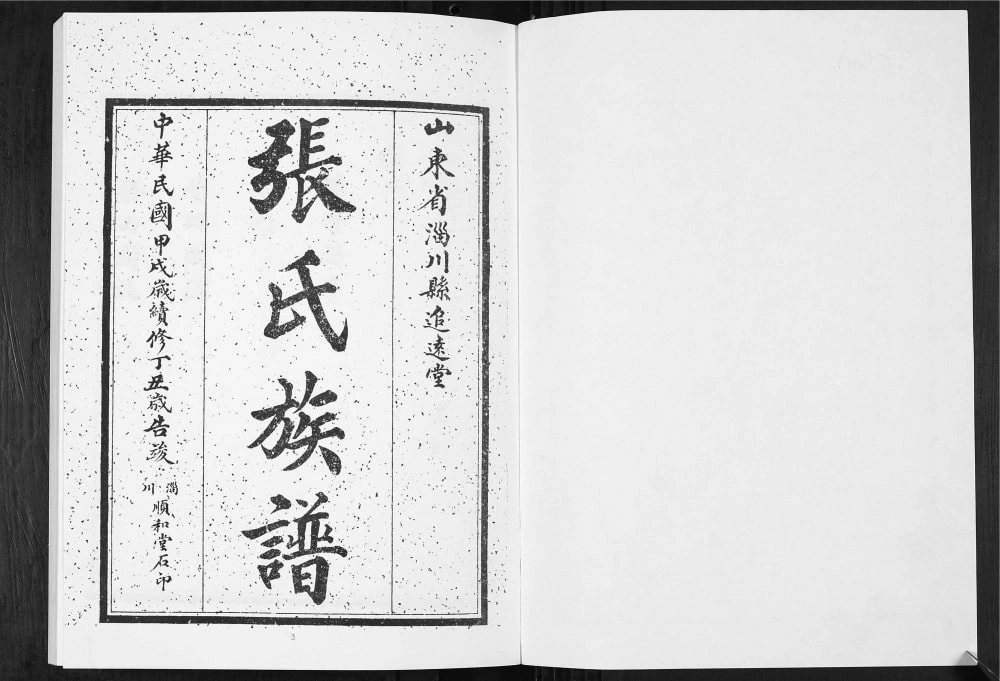 山東省淄川縣追遠堂
張氏族譜
中華民國甲戌歲續修丁丑歲告竣
淄川
順和堂石印
3